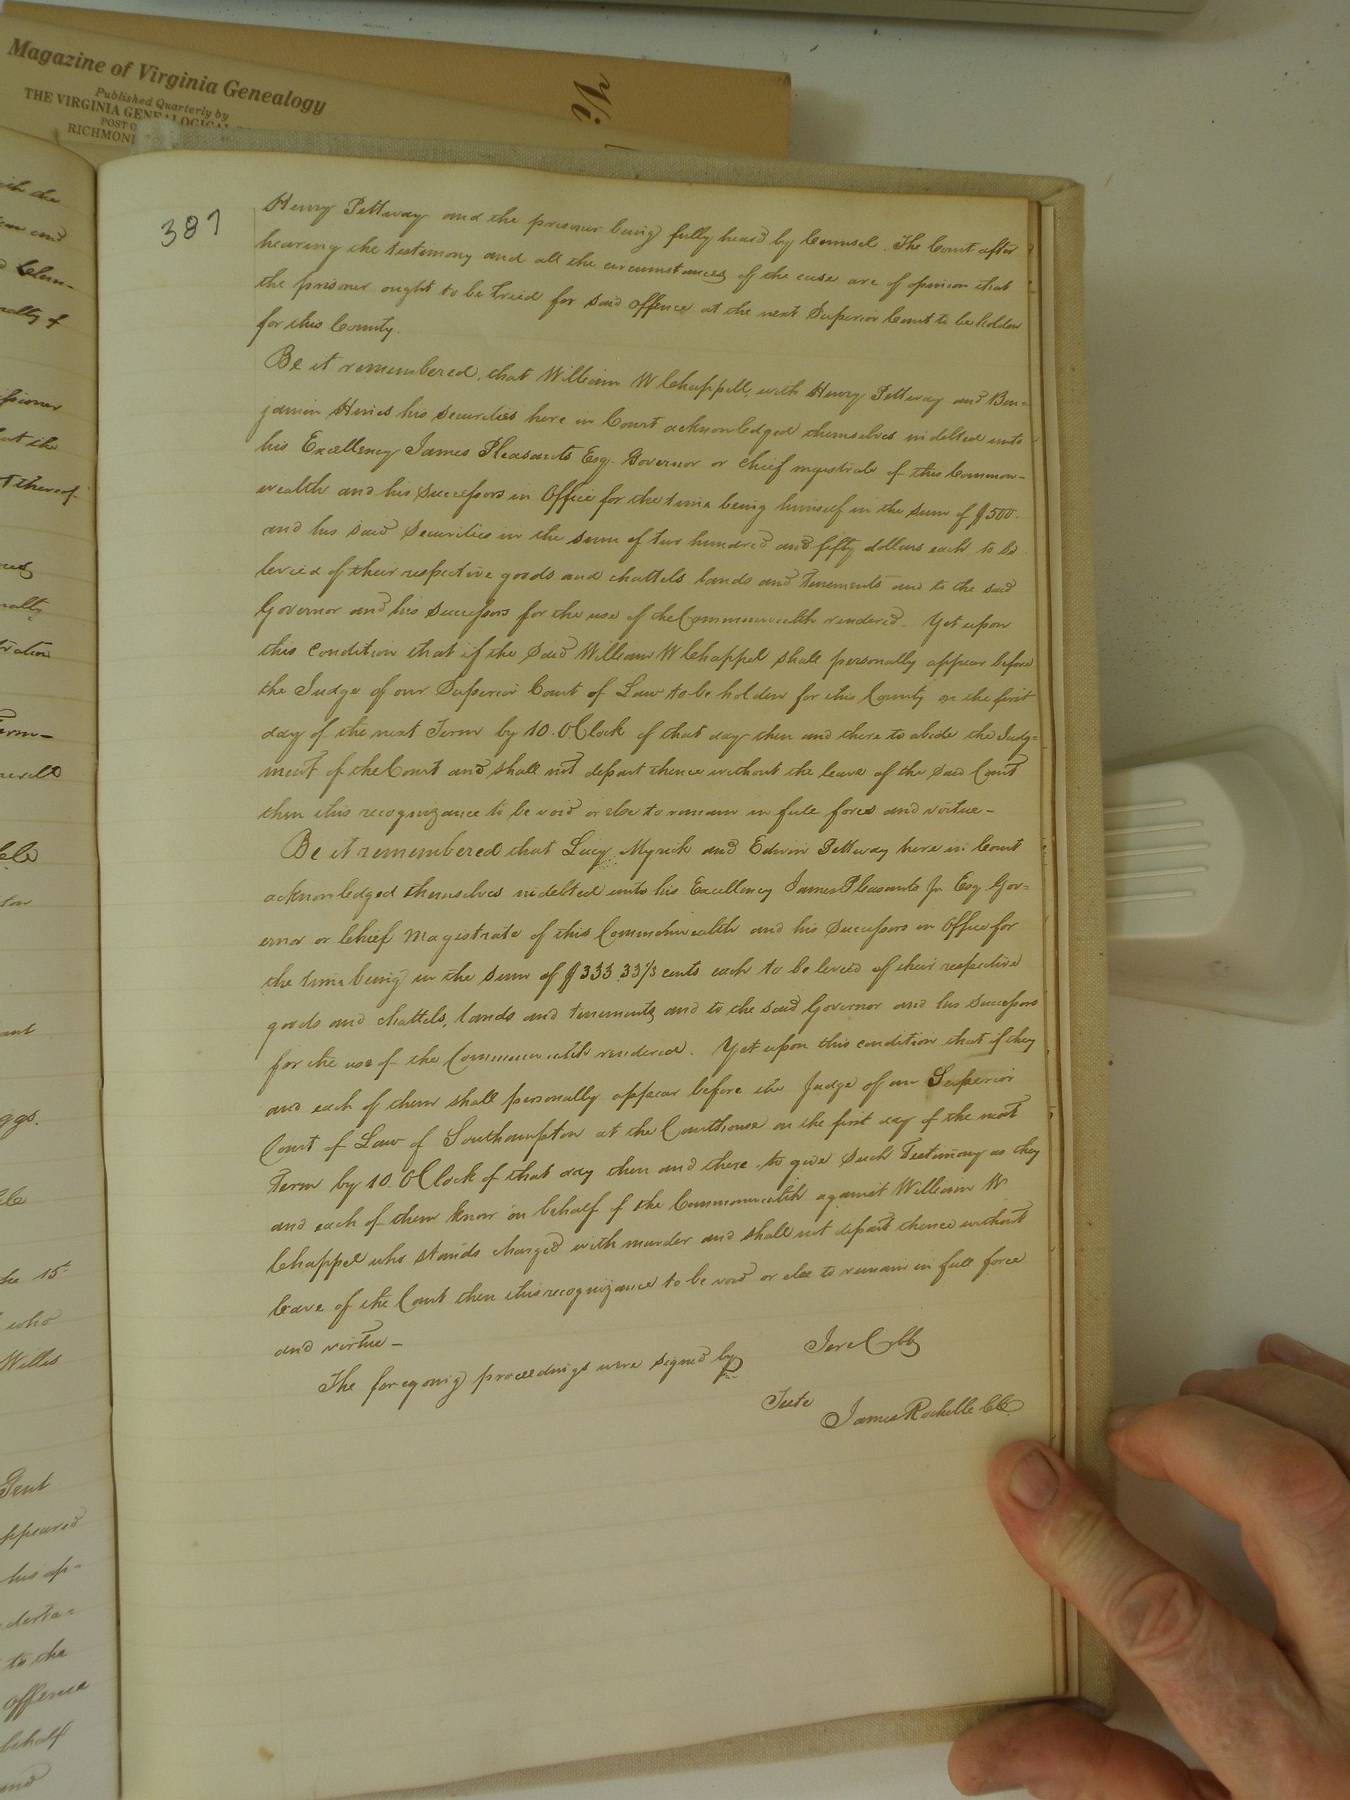 Magazine of Virginia Genealogy
Published Quarterly by
THE VIRGINIA GENEALOGICAL
POST O
RICHMON
Vi
387
Henry Pettway and the prisoner being fully heard by Counsel. The Court after
hearing the testimony and all the circumstances of the case are of opinion that
the prisoner ought to be tried for said offence at the next Superior Court to be holden
for this County.
Be it remembered, that William W Chappell, with Henry Pettway and Ben-
jamin Hines his securities here in Court acknowledged themselves indebted unto
his Excellency James Pleasants Esq. Governor or chief magistrate of this Common-
wealth and his Successors in Office for the time being himself in the sum of $500.
and his said Securities in the sum of two hundred and fifty dollars each to be
levied of their respective goods and chattels lands and tenements and to the said
Governor and his Successors for the use of the Commonwealth rendered. Yet upon
this condition that if the said William W Chappel shall personally appear before
the Judge of our Superior Court of Law to be holden for this County on the first
day of the next Term by 10. OClock of that day then and there to abide the Judg=
ment of the Court and shall not depart thence without the leave of the said Court
then this recognizance to be void or else to remain in full force and virtue-
Be it remembered that Lucy Myrick and Edwin Pettway here in Court
acknowledged themselves indebted unto his Excellency James Pleasants Jr Esq Gov=
ernor or Chief Magistrate of this Commonwealth and his Successors in Office for
the time being in the sum of $333.33⅓ cents each to be levied of their respective
goods and chattels, lands and tenements and to the said Governor and his successors
for the use of the Commonwealth rendered. Yet upon this condition that if they
and each of them shall personally appear before the Judge of our Superior
Court of Law of Southampton at the Courthouse on the first day of the next
Term by 10. OClock of that day then and there to give Such Testimony as they
and each of them know on behalf of the Commonwealth against William W
Chappel who stands charged with murder and shall not depart thence without
leave of the Court then this recognizance to be void or else to remain in full force
and virtue-
The foregoing proceedings were signed by Jere Cobb
Teste
James Rochelle CC.